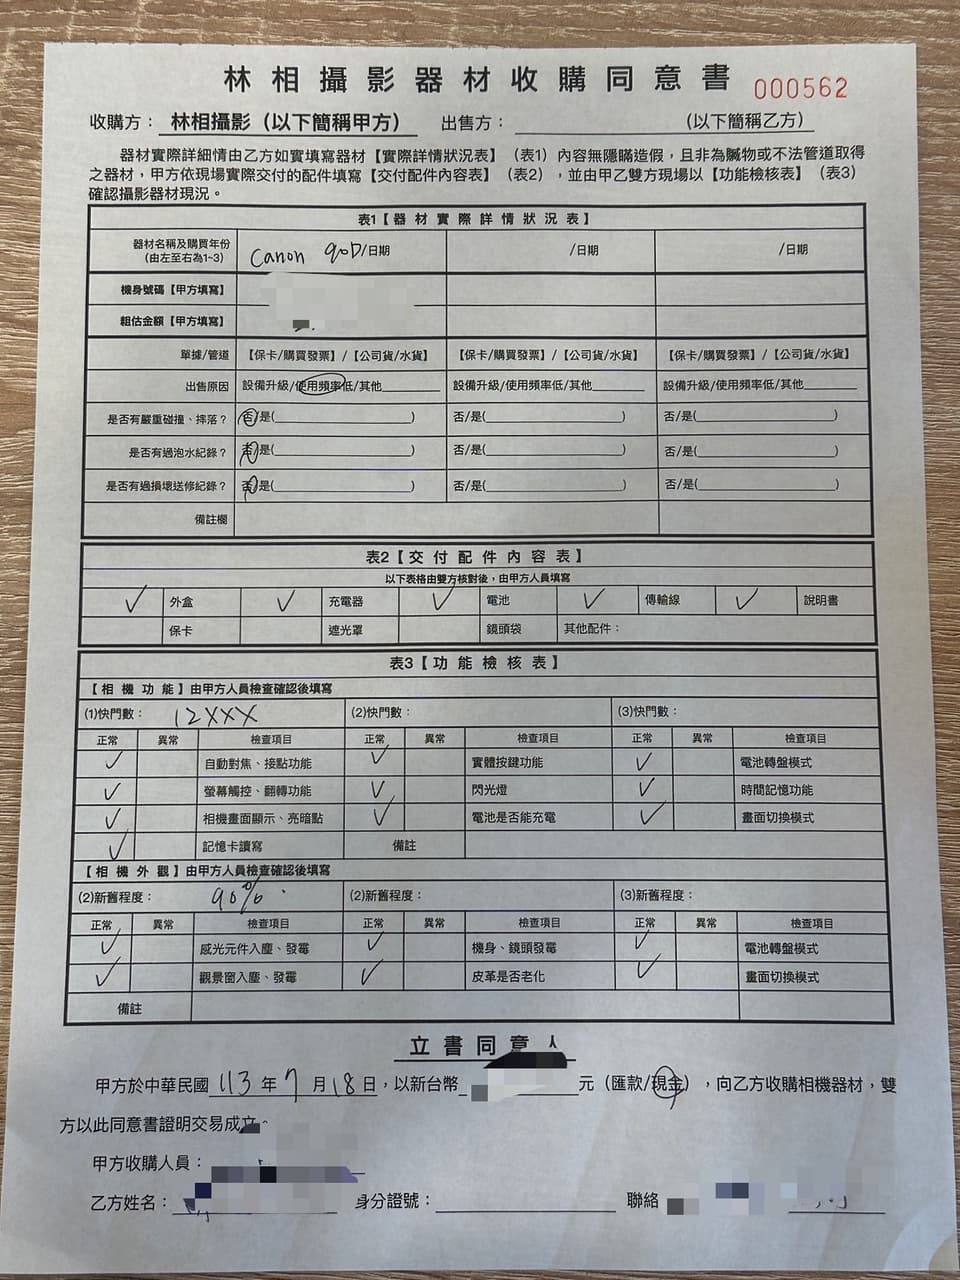 林相攝影器材收購同意書 000562
收購方：林相攝影（以下簡稱甲方） 出售方：（以下簡稱乙方）
器材實際詳細情由乙方如實填寫器材【實際詳情狀況表】（表1）內容無隱瞞造假，且非為贓物或不法管道取得
之器材，甲方依現場實際交付的配件填寫【交付配件內容表】（表2），並由甲乙雙方現場以【功能檢核表】（表3）
確認攝影器材現況。
表1【器材實際詳情狀況表】
器材名稱及購買年份 Canon 90D/日期 /日期 /日期
（由左至右為1~3）
機身號碼【甲方填寫】
粗估金額【甲方填寫】
單據/管道 【保卡/購買發票】/【公司貨/水貨】 【保卡/購買發票】/【公司貨/水貨】 【保卡/購買發票】/【公司貨/水貨】
出售原因 設備升級/使用頻率低/其他 設備升級/使用頻率低/其他 設備升級/使用頻率低/其他
是否有嚴重碰撞、摔落？ 否/是( ) 否/是( ) 否/是( )
是否有過泡水紀錄？ 否/是( ) 否/是( ) 否/是( )
是否有過損壞送修紀錄？ 否/是( ) 否/是( ) 否/是( )
備註欄
表2【交付配件內容表】
以下表格由雙方核對後，由甲方人員填寫
✓ 外盒 ✓ 充電器 ✓ 電池 ✓ 傳輸線 ✓ 說明書
保卡 遮光罩 鏡頭袋 其他配件：
表3【功能檢核表】
【相機功能】由甲方人員檢查確認後填寫
(1)快門數： 12XXX (2)快門數： (3)快門數：
正常 異常 檢查項目 正常 異常 檢查項目 正常 異常 檢查項目
✓ 自動對焦、接點功能 ✓ 實體按鍵功能 ✓ 電池轉盤模式
✓ 螢幕觸控、翻轉功能 ✓ 閃光燈 ✓ 時間記憶功能
✓ 相機畫面顯示、亮暗點 ✓ 電池是否能充電 ✓ 畫面切換模式
✓ 記憶卡讀寫 備註
【相機外觀】由甲方人員檢查確認後填寫
(2)新舊程度： 90% (2)新舊程度： (3)新舊程度：
正常 異常 檢查項目 正常 異常 檢查項目 正常 異常 檢查項目
✓ 感光元件入塵、發霉 ✓ 機身、鏡頭發霉 ✓ 電池轉盤模式
✓ 觀景窗入塵、發霉 ✓ 皮革是否老化 ✓ 畫面切換模式
備註
立書同意人
甲方於中華民國 113 年 7 月 18 日，以新台幣 元（匯款/現金），向乙方收購相機器材，雙
方以此同意書證明交易成立。
甲方收購人員：
乙方姓名： 身分證號： 聯絡